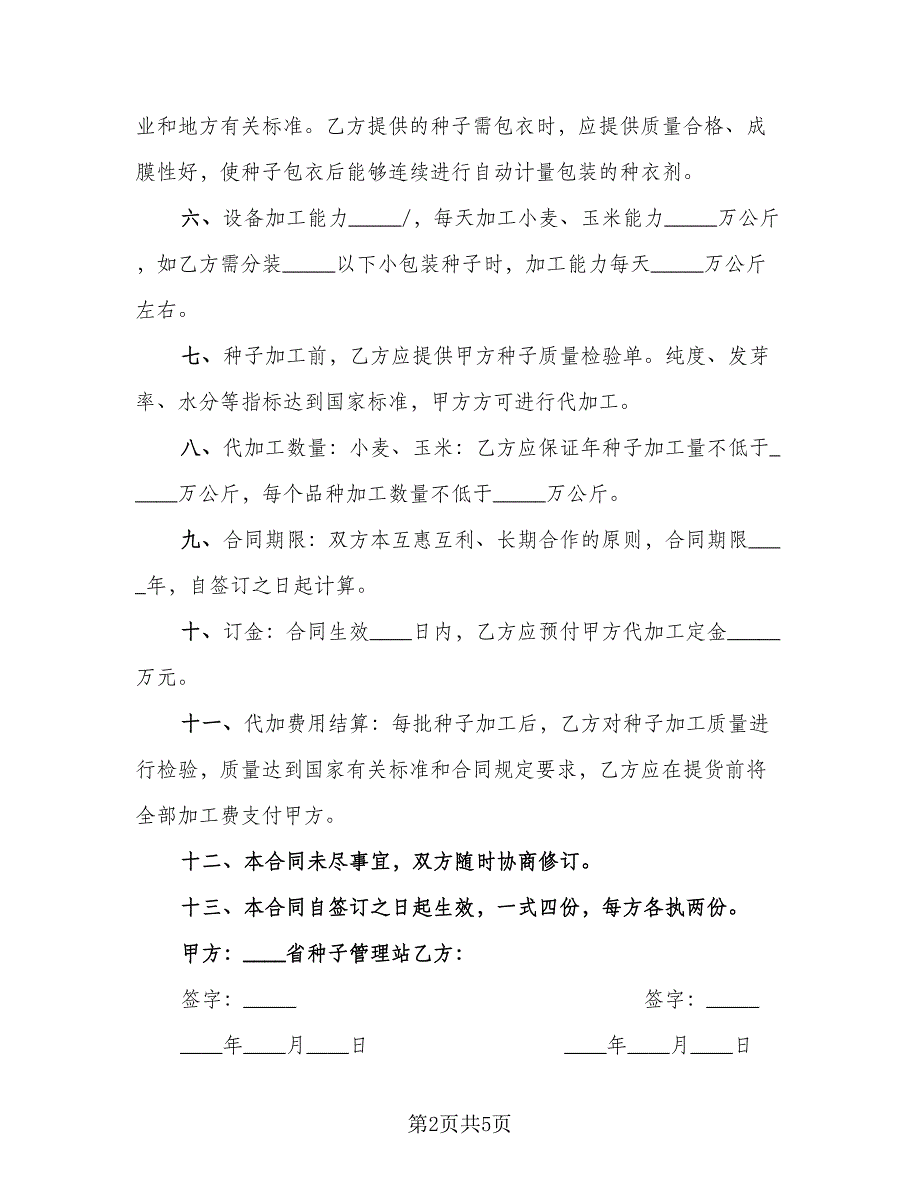 业和地方有关标准。乙方提供的种子需包衣时，应提供质量合格、成
膜性好，使种子包衣后能够连续进行自动计量包装的种衣剂。
六、设备加工能力_____/，每天加工小麦、玉米能力_____万公斤
，如乙方需分装_____以下小包装种子时，加工能力每天_____万公斤
左右。
七、种子加工前，乙方应提供甲方种子质量检验单。纯度、发芽
率、水分等指标达到国家标准，甲方方可进行代加工。
八、代加工数量：小麦、玉米：乙方应保证年种子加工量不低于_
____万公斤，每个品种加工数量不低于_____万公斤。
九、合同期限：双方本互惠互利、长期合作的原则，合同期限___
_年，自签订之日起计算。
十、订金：合同生效____日内，乙方应预付甲方代加工定金_____
万元。
十一、代加费用结算：每批种子加工后，乙方对种子加工质量进
行检验，质量达到国家有关标准和合同规定要求，乙方应在提货前将
全部加工费支付甲方。
十二、本合同未尽事宜，双方随时协商修订。
十三、本合同自签订之日起生效，一式四份，每方各执两份。
甲方：____省种子管理站乙方：
签字：_____ 签字：_____
____年____月____日 ____年____月____日
第2页共5页